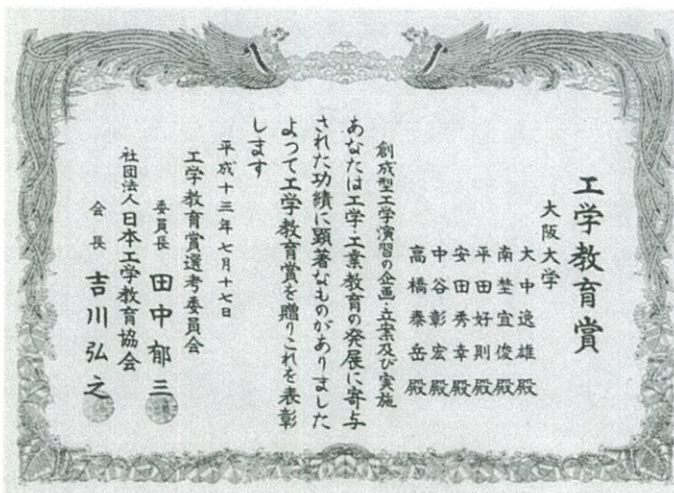 工学教育賞
大阪大学
大中逸雄殿
南埜宜俊殿
平田好則殿
安田秀幸殿
中谷彰宏殿
高橋泰岳殿
創成型工学演習の企画・立案及び実施
あなたは工学・工業教育の発展に寄与
された功績に顕著なものがありました
よって工学教育賞を贈りこれを表彰
します
平成十三年七月十七日
工学教育賞選考委員会
委員長 田中郁三
社団法人日本工学教育協会
会長 吉川弘之